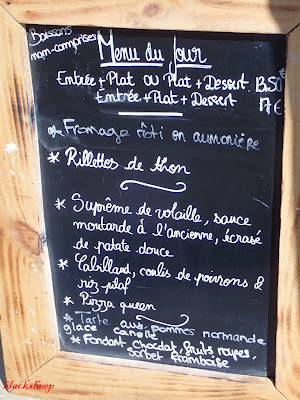 Boissons
non-comprises
Menu du Jour
Entrée + Plat ou Plat + Dessert 13,50€
Entrée + Plat + Dessert 17€
* Fromage rôti en aumonière
* Rillettes de thon
* Suprême de volaille, sauce
moutarde à l'ancienne, écrasé
de patate douce
* Cabillaud, coulis de poivrons &
riz pilaf
* Pizza queen
* Tarte aux pommes normande
glace canelle
* Fondant chocolat, fruits rouges,
sorbet framboise
blacksheep